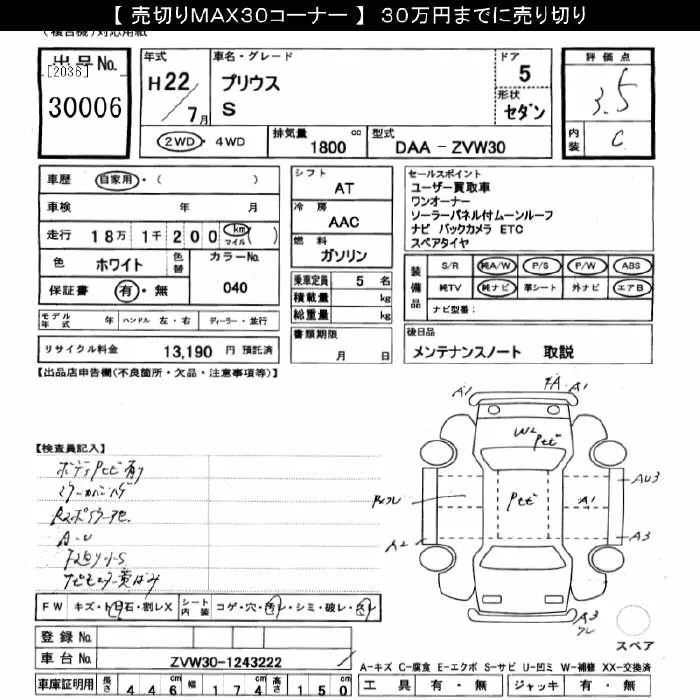 【 売切りMAX30コーナー 】 30万円までに売り切り
(複合機)対応用紙
出品No.
[2036]
30006
年式
H22/7月
車名・グレード
プリウス
S
ドア
5
形状
セダン
評価点
3.5
内装
C
2WD・4WD
排気量 1800 cc
型式 DAA-ZVW30
車歴 自家用・( )
車検 年 月
走行 18万 1千 200 km マイル ( )
色 ホワイト 色替 カラーNo. 040
保証書 有・無
シフト AT
冷房 AAC
燃料 ガソリン
乗車定員 5 名
積載量 kg
総重量 kg
セールスポイント
ユーザー買取車
ワンオーナー
ソーラーパネル付ムーンルーフ
ナビ バックカメラ ETC
スペアタイヤ
装備品
S/R 純A/W P/S P/W ABS
純TV 純ナビ 革シート 外ナビ エアB
ナビ型番:
モデル年式 年 ハンドル 左・右 ディーラー・並行
リサイクル料金 13,190 円 預託済
書類期限
月 日
後日品
メンテナンスノート 取説
【出品店申告欄(不良箇所・欠品・注意事項等)】
A1 FA A1
W2 Pセビ
AU3
Pセビ
A1
A2
A3
A3
スペア
【検査員記入】
ボディPセビ有
A-U
FW キズ・ト石・割レX シート内装 コゲ・穴・汚レ・シミ・破レ・スレ
登録No.
車台No. ZVW30-1243222
車庫証明用 長さ 446 cm 幅 174 cm 高さ 150 cm
A-キズ C-腐食 E-エクボ S-サビ U-凹ミ W-補修 XX-交換済
工具 有・無 ジャッキ 有・無